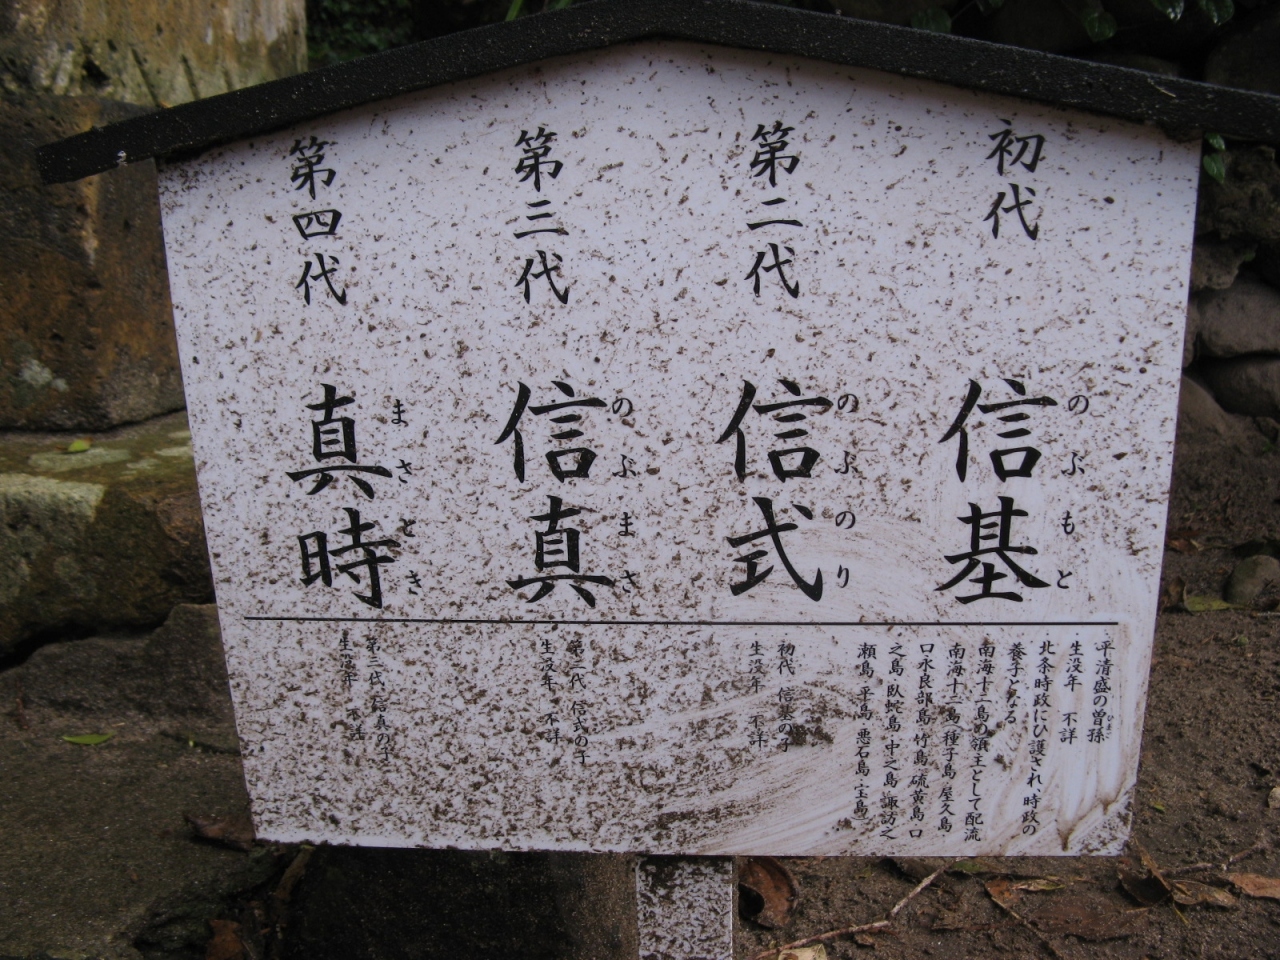 初代
信基
のぶもと
・平清盛の曽孫
ひまご
・生没年 不詳
北条時政にひ護され、時政の
養子となる
南海十二島の領主として配流
南海十二島 種子島 屋久島
口永良部島 竹島 硫黄島 口
之島 臥蛇島・中之島 諏訪之
瀬島 平島 悪石島・宝島)
第二代
信式
のぶのり
初代 信基の子
生没年 不詳
第三代
信真
のぶまさ
第二代 信式の子
生没年 不詳
第四代
真時
まさとき
第三代 信真の子
生没年 不詳